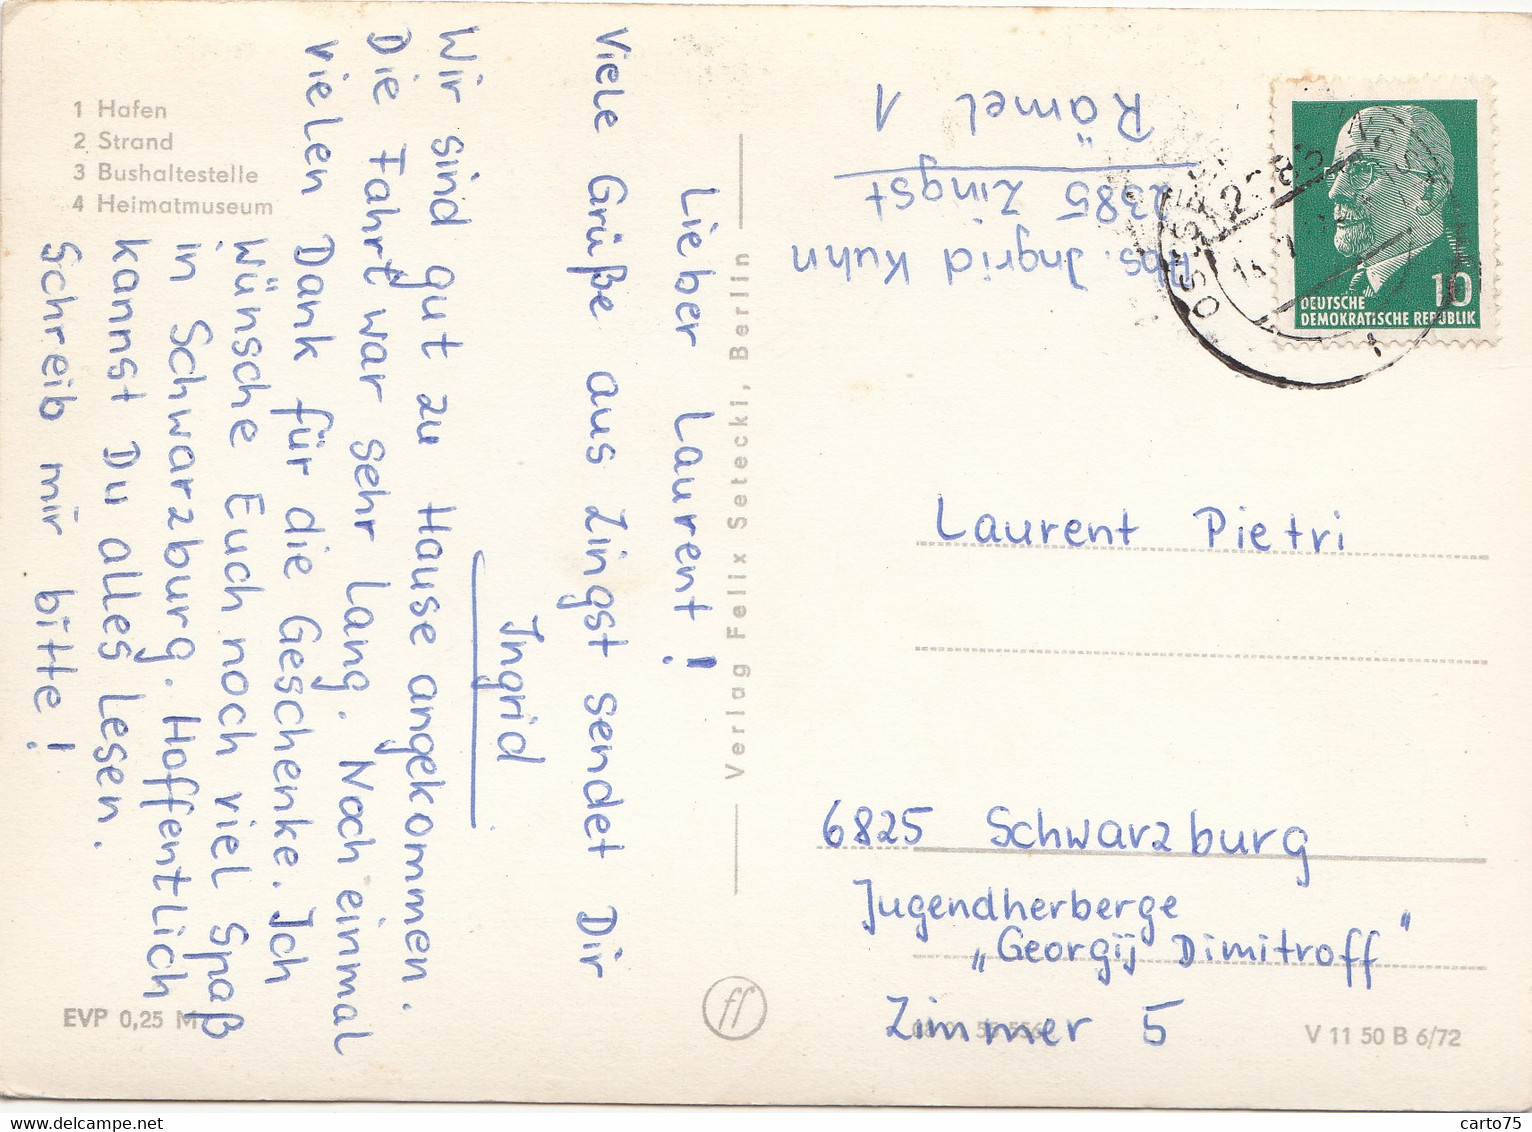 1 Hafen
2 Strand
3 Bushaltestelle
4 Heimatmuseum
Lieber Laurent!
Viele Grüße aus Zingst sendet Dir
Ingrid
Wir sind gut zu Hause angekommen.
Die Fahrt war sehr lang. Noch einmal
vielen Dank für die Geschenke. Ich
wünsche Euch noch viel Spaß
in Schwarzburg. Hoffentlich
kannst Du alles lesen.
Schreib mir bitte!
EVP 0,25 M
Verlag Felix Setecki, Berlin
ff
Abs. Ingrid Kuhn
2385 Zingst
Rämel 1
10
DEUTSCHE
DEMOKRATISCHE REPUBLIK
Laurent Pietri
6825 Schwarzburg
Jugendherberge
„Georgij Dimitroff"
Zimmer 5
V 11 50 B 6/72
carto75